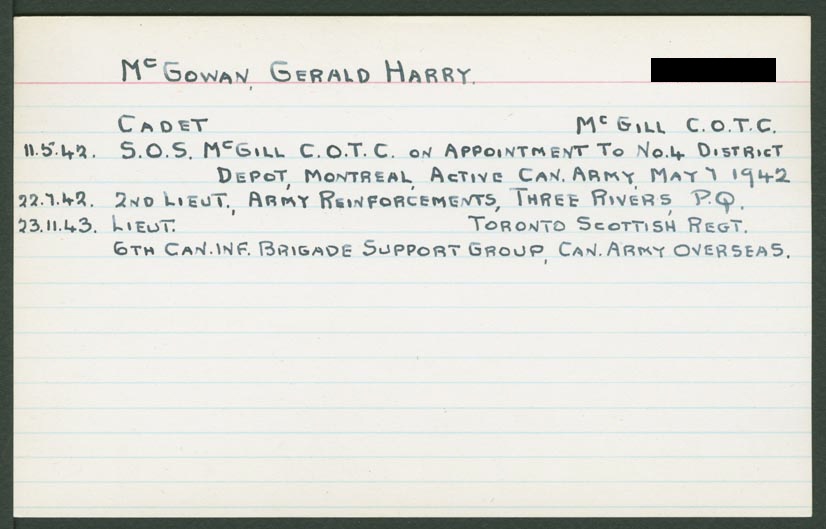 McGOWAN, GERALD HARRY.
CADET McGILL C.O.T.C.
11.5.42. S.O.S. McGILL C.O.T.C. ON APPOINTMENT TO No.4 DISTRICT
DEPOT, MONTREAL, ACTIVE CAN. ARMY, MAY 7 1942
22.7.42. 2ND LIEUT., ARMY REINFORCEMENTS, THREE RIVERS, P.Q.
23.11.43. LIEUT. TORONTO SCOTTISH REGT.
6TH CAN. INF. BRIGADE SUPPORT GROUP, CAN. ARMY OVERSEAS.